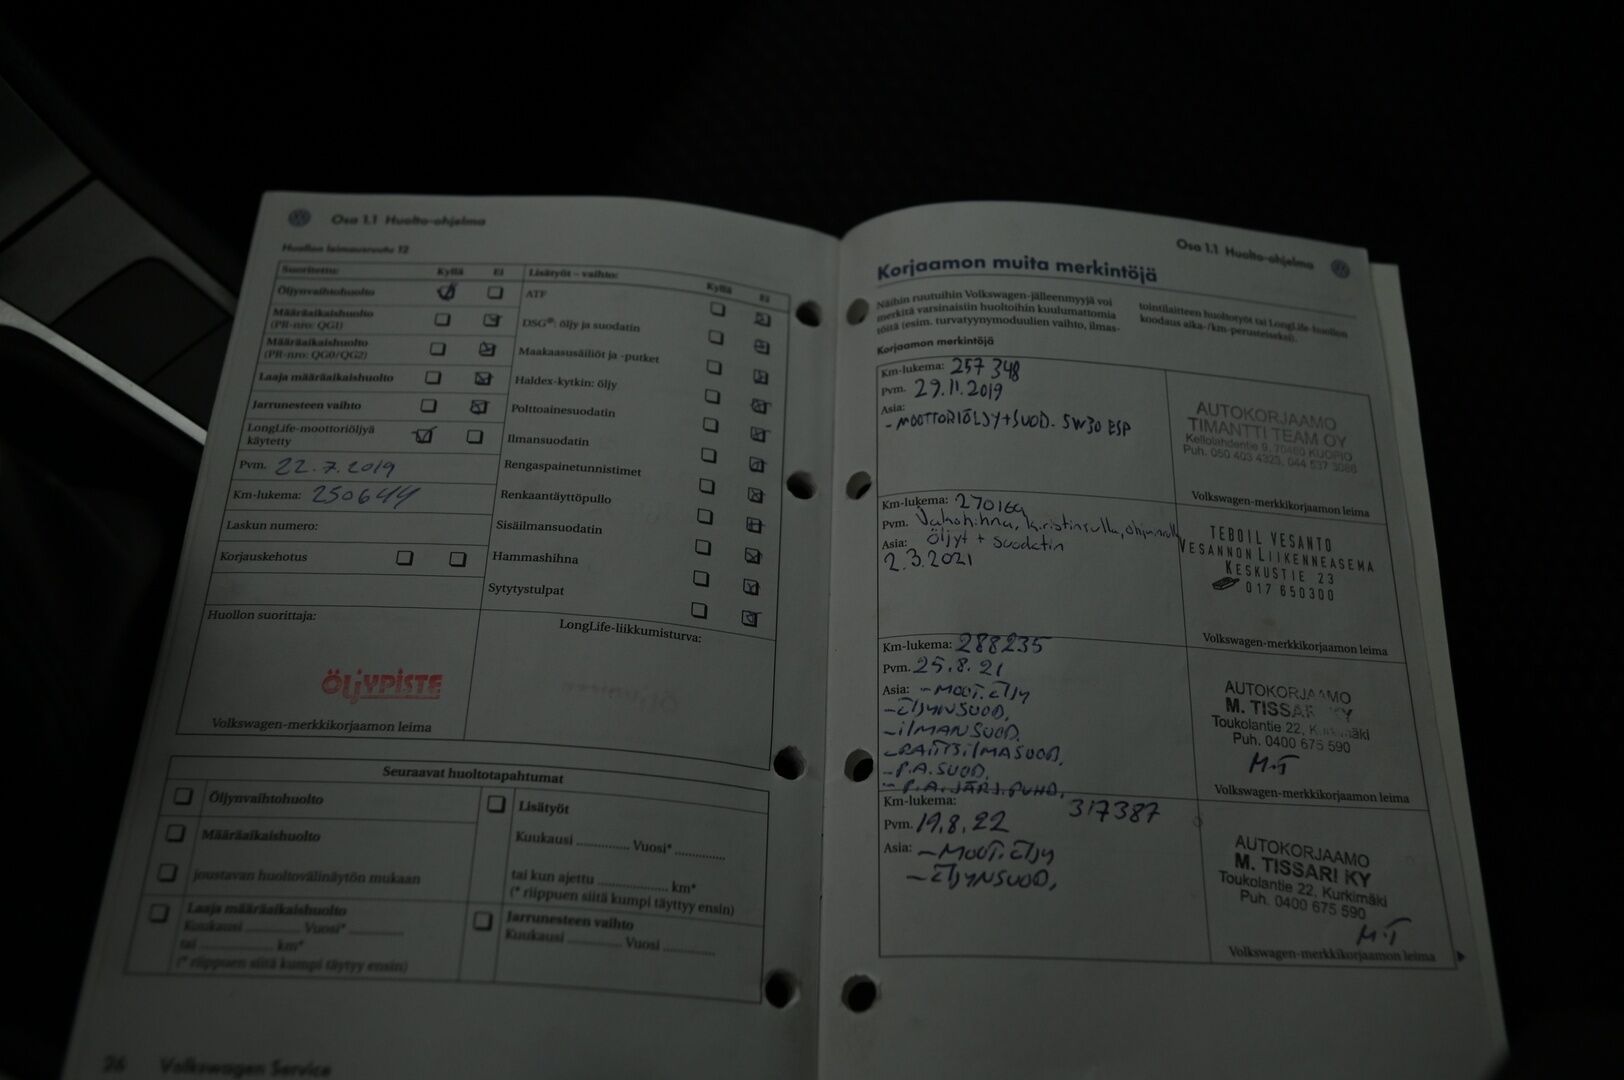 Osa 1.1 Huolto-ohjelma
Huollon leimausruutu 12
Suoritettu: Kyllä Ei
Öljynvaihtohuolto
Määräaikaishuolto
(PR-nro: QG1)
Määräaikaishuolto
(PR-nro: QG0/QG2)
Laaja määräaikaishuolto
Jarrunesteen vaihto
LongLife-moottoriöljyä
käytetty
Pvm. 22.7.2019
Km-lukema: 250644
Laskun numero:
Korjauskehotus
Huollon suorittaja:
ÖLJYPISTE
Volkswagen-merkkikorjaamon leima
Lisätyöt – vaihto: Kyllä Ei
ATF
DSG®: öljy ja suodatin
Maakaasusäiliöt ja -putket
Haldex-kytkin: öljy
Polttoainesuodatin
Ilmansuodatin
Rengaspainetunnistimet
Renkaantäyttöpullo
Sisäilmansuodatin
Hammashihna
Sytytystulpat
LongLife-liikkumisturva:
Seuraavat huoltotapahtumat
Öljynvaihtohuolto
Määräaikaishuolto
joustavan huoltovälinäytön mukaan
Laaja määräaikaishuolto
Kuukausi .............. Vuosi* ..............
tai .................... km*
(* riippuen siitä kumpi täytyy ensin)
Lisätyöt
Kuukausi .............. Vuosi* ..............
tai kun ajettu .................... km*
(* riippuen siitä kumpi täyttyy ensin)
Jarrunesteen vaihto
Kuukausi .............. Vuosi ..............
26 Volkswagen Service
Osa 1.1 Huolto-ohjelma
Korjaamon muita merkintöjä
Näihin ruutuihin Volkswagen-jälleenmyyjä voi
merkitä varsinaistin huoltoihin kuulumattomia
töitä (esim. turvatyynymoduulien vaihto, ilmas-
tointilaitteen huoltotyöt tai LongLife-huollon
koodaus aika-/km-perusteiseksi).
Korjaamon merkintöjä
Km-lukema: 257 348
Pvm. 29.11.2019
Asia:
- MOOTTORIÖLJY+SUOD. 5W30 ESP
AUTOKORJAAMO
TIMANTTI TEAM OY
Kellolahdentie 9, 70460 KUOPIO
Puh. 050 403 4325, 044 537 3088
Volkswagen-merkkikorjaamon leima
Km-lukema: 270169
Pvm. Jakohihna, kiristinrulla, ohjainrulla
Asia: Öljyt + suodatin
2.3.2021
TEBOIL VESANTO
VESANNON LIIKENNEASEMA
KESKUSTIE 23
017 650300
Volkswagen-merkkikorjaamon leima
Km-lukema: 288235
Pvm. 25.8.21
Asia: - MOOT.ÖLJY
- ÖLJYNSUOD,
- ILMANSUOD.
- RAITISILMASUOD,
- P.A.SUOD,
- P.A.JÄRJ.PUHD,
AUTOKORJAAMO
M. TISSARI KY
Toukolantie 22, Kurkimäki
Puh. 0400 675 590
M.T
Volkswagen-merkkikorjaamon leima
Km-lukema: 317387
Pvm. 19.8.22
Asia: - MOOT.ÖLJY
- ÖLJYNSUOD,
AUTOKORJAAMO
M. TISSARI KY
Toukolantie 22, Kurkimäki
Puh. 0400 675 590
M.T
Volkswagen-merkkikorjaamon leima